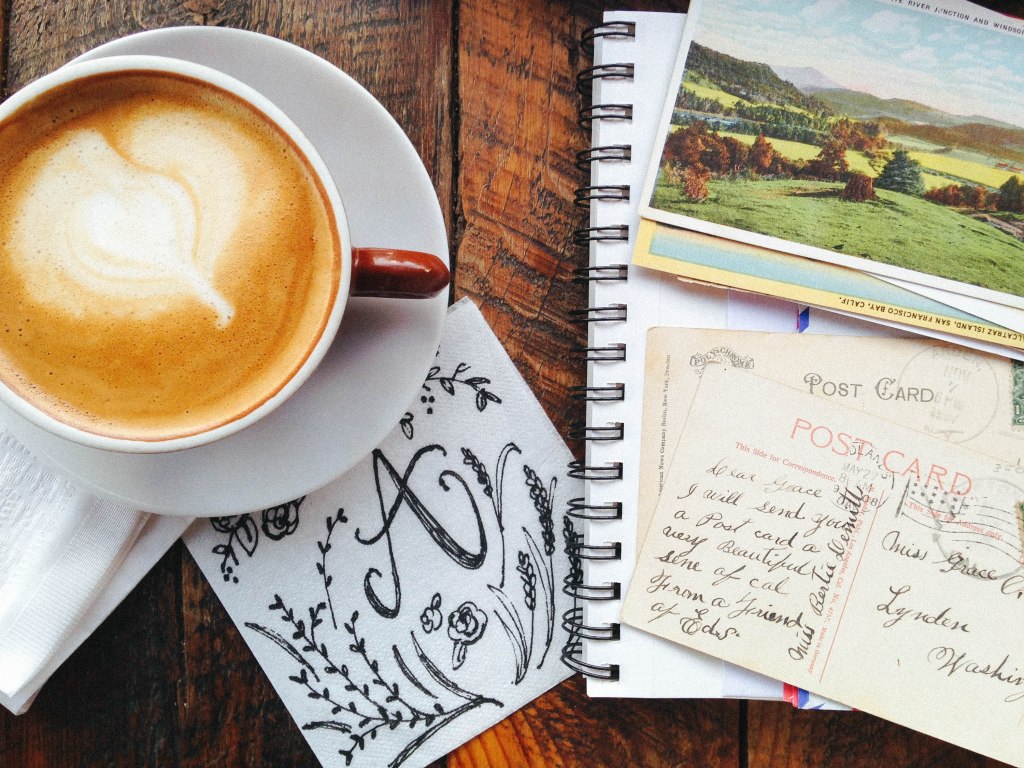 RIVER JUNCTION AND WINDSOR
ALCATRAZ ISLAND, SAN FRANCISCO BAY, CALIF.
POLYCHROME
POST CARD
NOV
7
POST CARD
This Side for Correspondence.
This Side for Address only
MAY 22
Dear Grace
I will send you
a Post card a
very Beautiful
sene of cal
From a Friend
of Eds.
Miss Bertie
Miss Grace C
Lynden
Washin
A